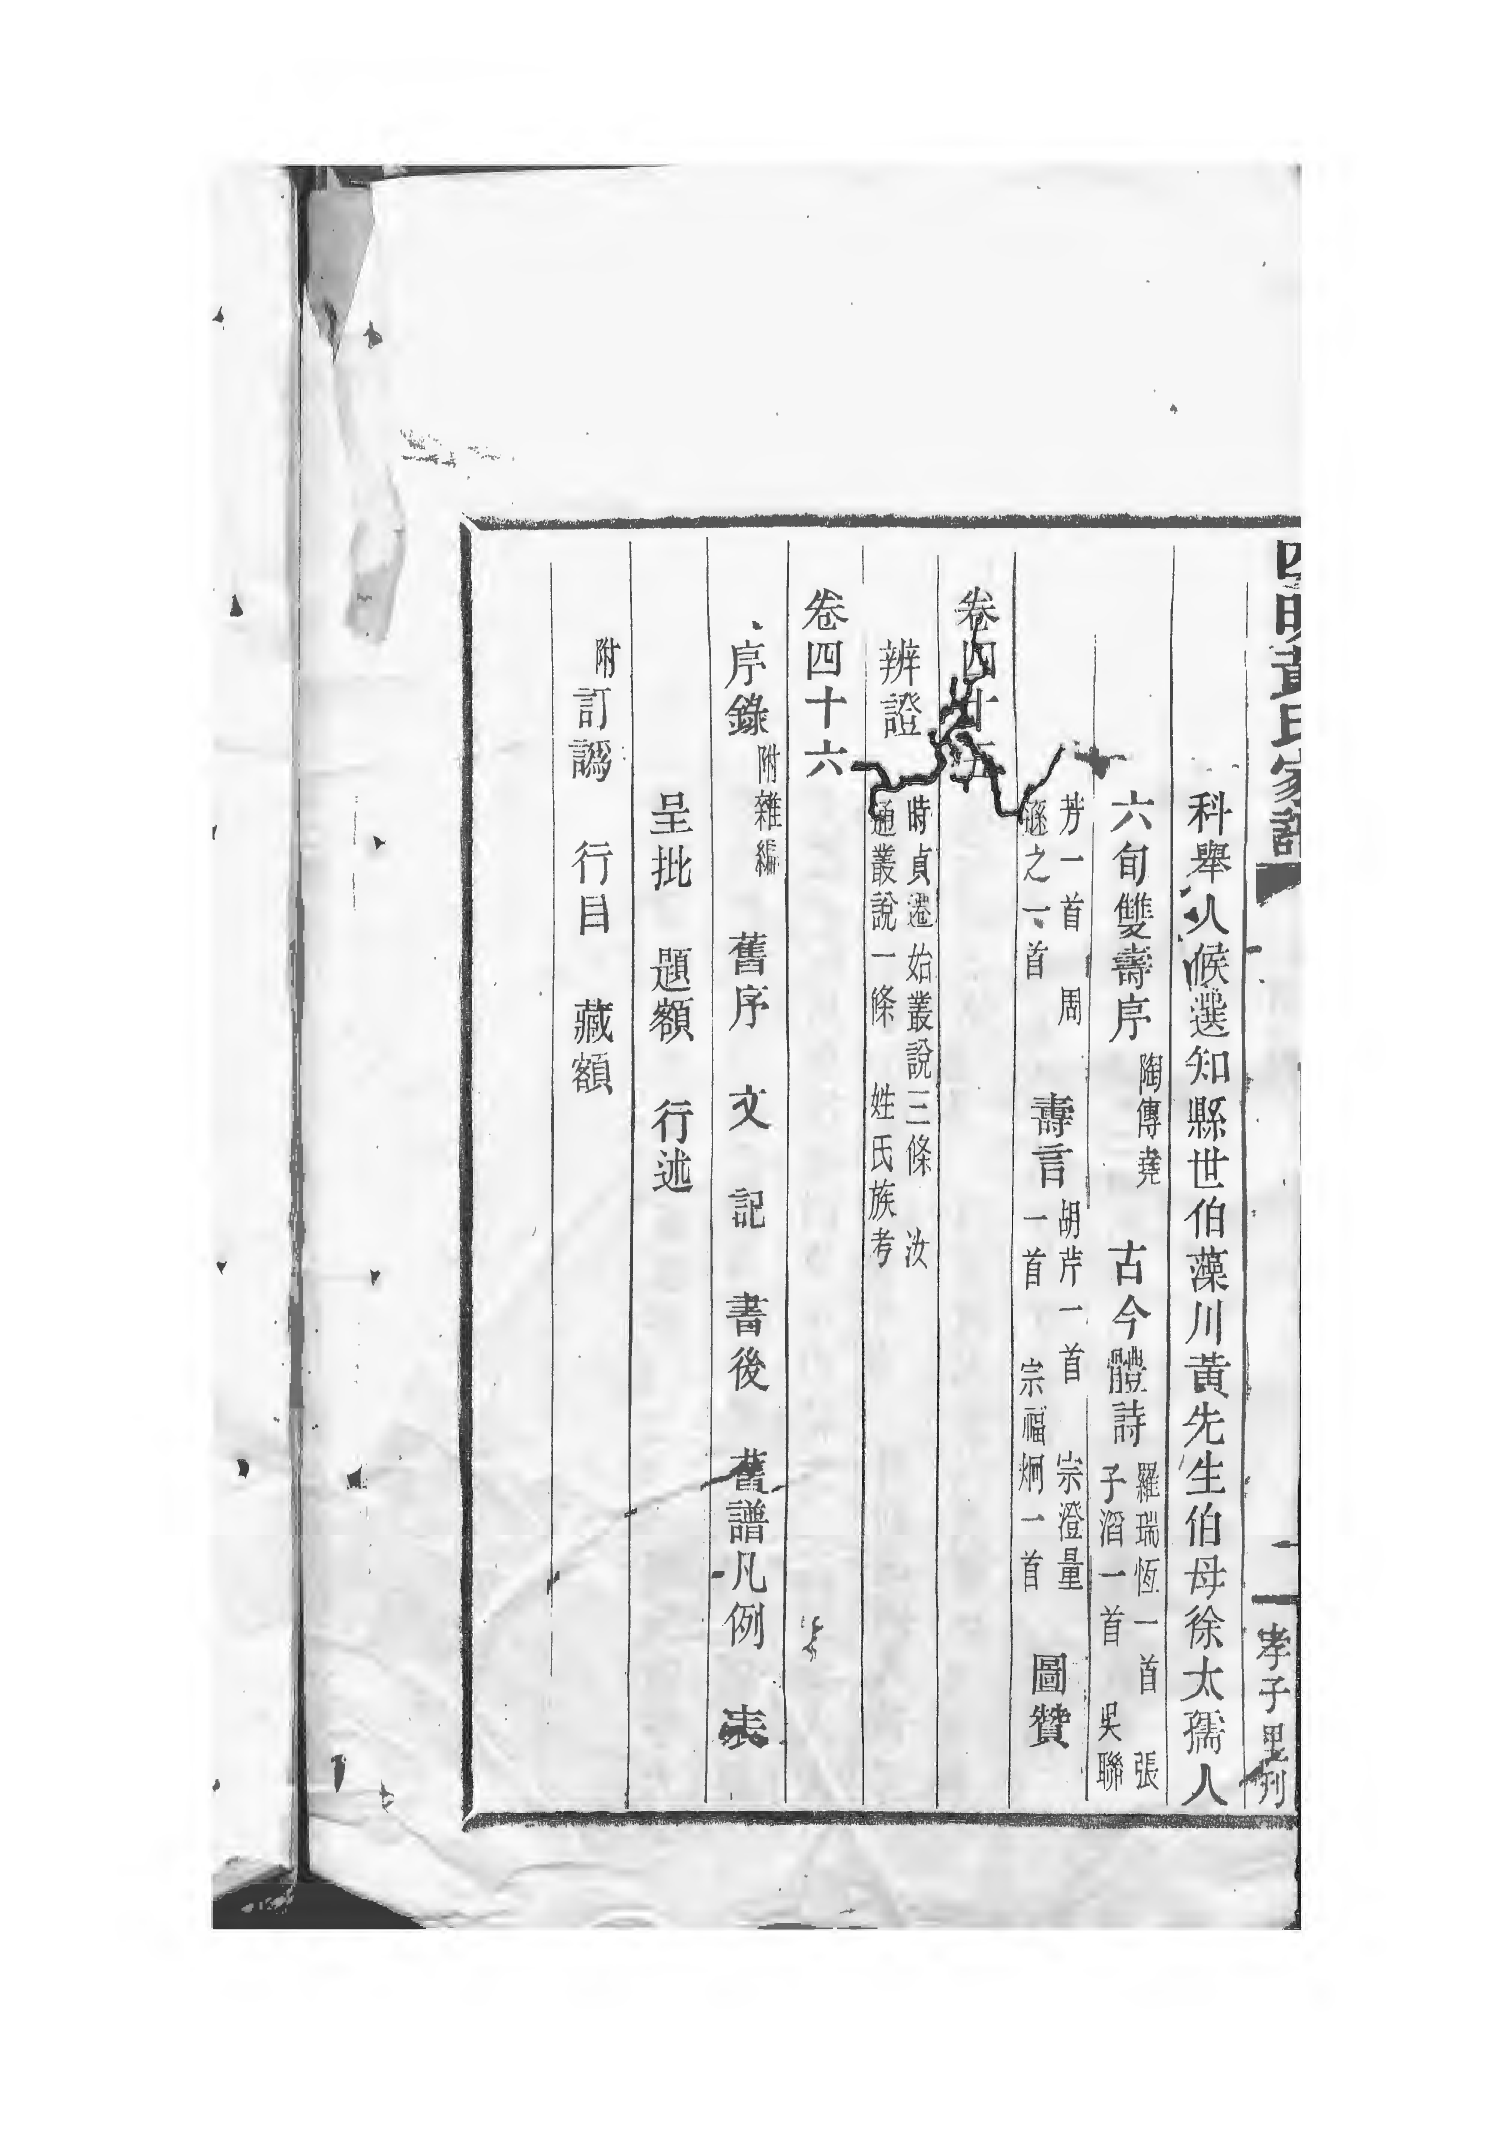 四明黃氏家譜
孝子里刊
科舉人候選知縣世伯藻川黃先生伯母徐太孺人
六旬雙壽序 陶傳堯 古今體詩 羅瑞恆一首 張
子滔一首 吳聯
芳一首 周
遜之一首 壽言 胡芹一首 宗澄量
一首 宗福炯一首 圖贊
卷四十五
辨證 時貞遷始叢說三條 汝
通叢說一條 姓氏族考
卷四十六
序錄 附雜編 舊序 文 記 書後 舊譜凡例 表
呈批 題額 行述
附訂譌 行目 藏額